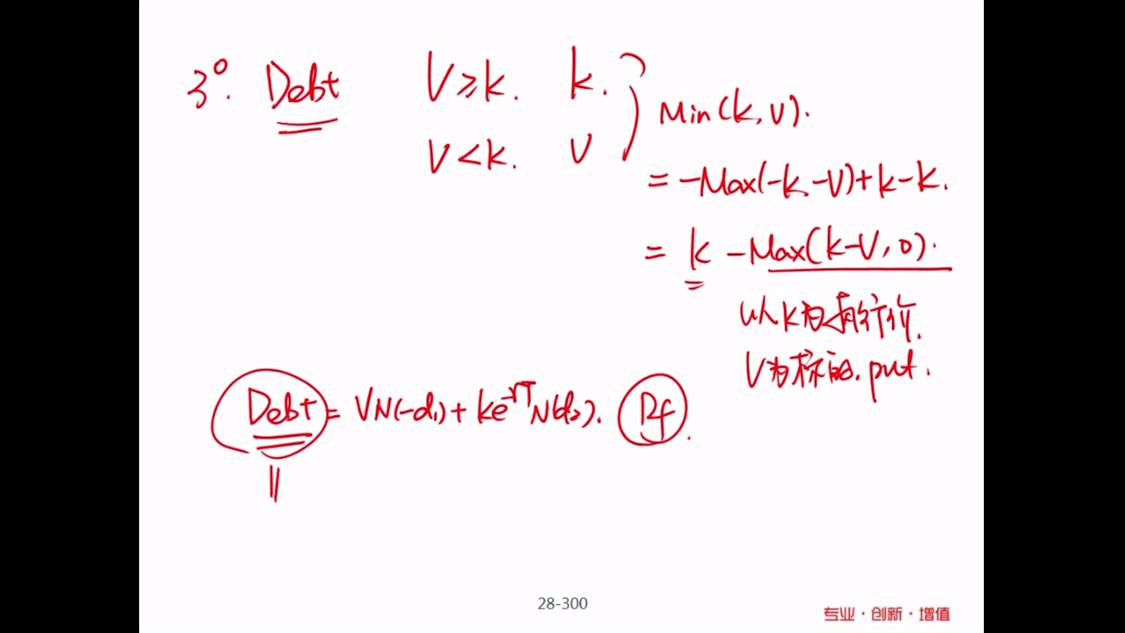 3°. Debt V≥k. k.
V<k. V
Min(k,V).
= -Max(-k,-V)+k-k.
= k -Max(k-V,0).
以k为执行价.
V为标的. put.
Debt = VN(-d₁)+ke^-rT N(d₂). Rf.
||
28-300
专业·创新·增值